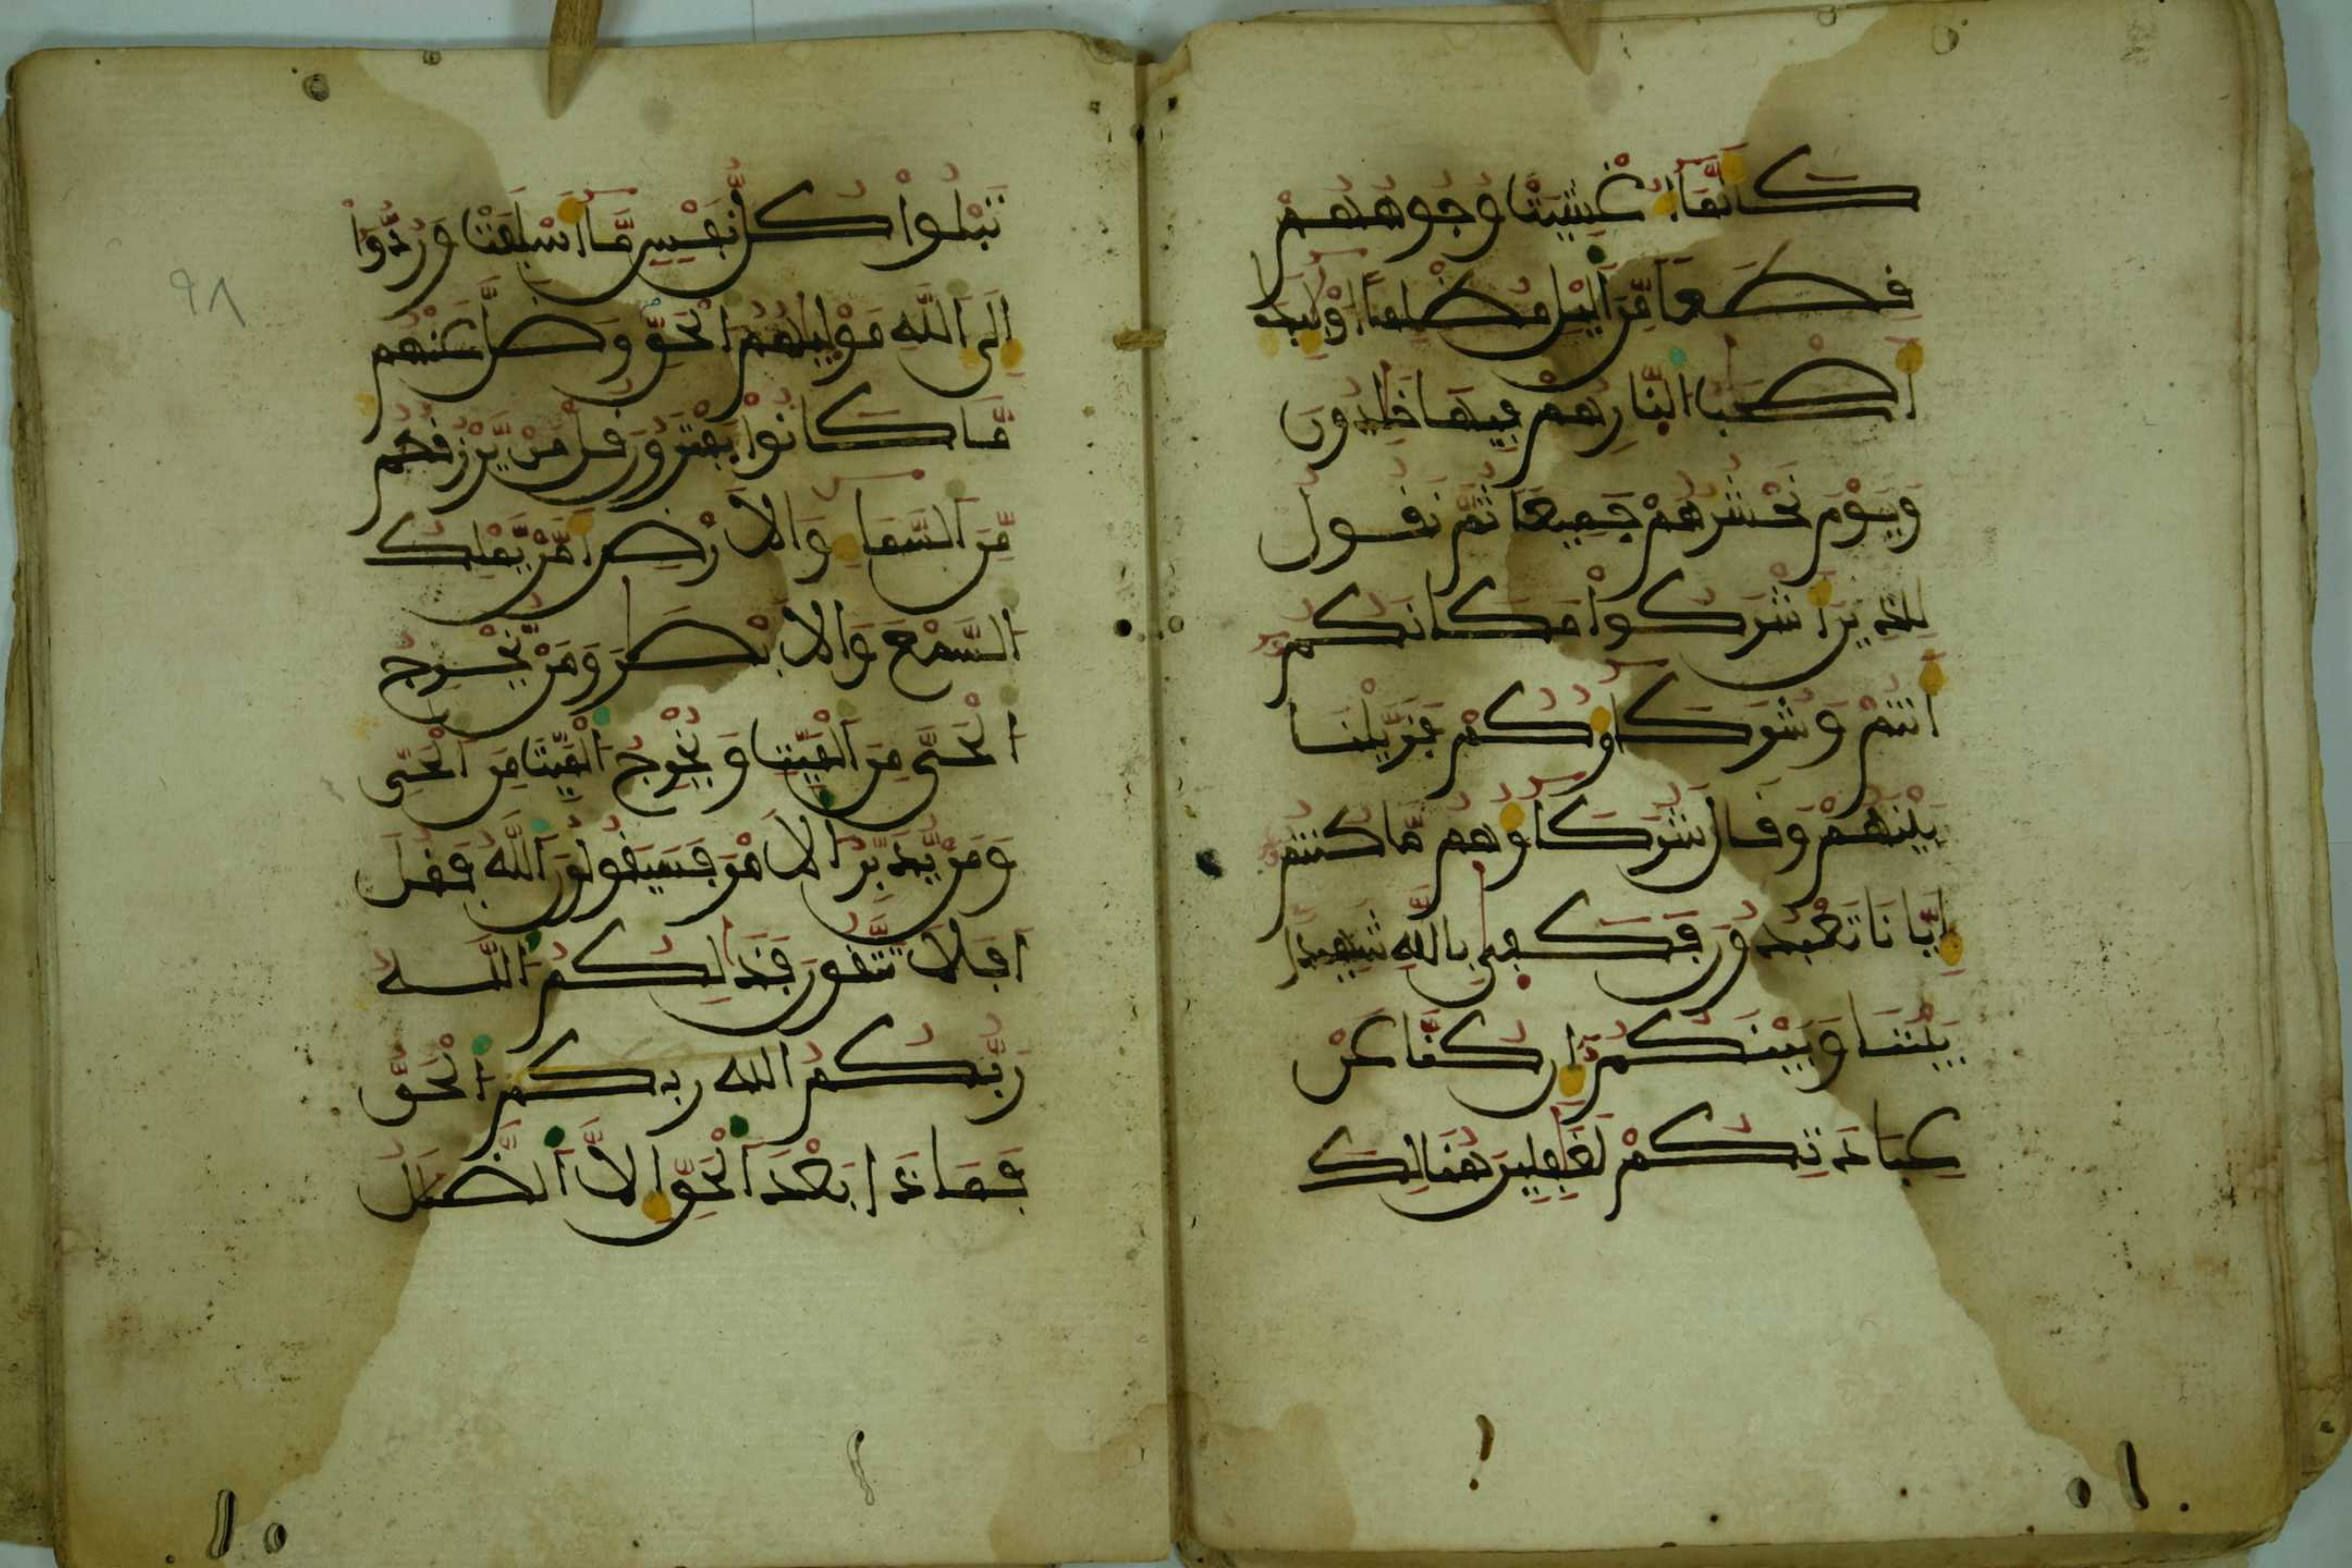 كأنما أغشيت وجوههم
قطعا من اليل مظلما أولئك
أصحب النار هم فيها خلدون
ويوم نحشرهم جميعا ثم نقول
للذين أشركوا مكانكم
أنتم وشركاؤكم فزيلنا
بينهم وقال شركاؤهم ما كنتم
إيانا تعبدون فكفى بالله شهيدا
بيننا وبينكم إن كنا عن
عبادتكم لغفلين هنالك
تبلوا كل نفس ما أسلفت وردوا
إلى الله موليهم الحق وضل عنهم
ما كانوا يفترون قل من يرزقكم
من السماء والأرض أمن يملك
السمع والأبصر ومن يخرج
الحي من الميت ويخرج الميت من الحي
ومن يدبر الأمر فسيقولون الله فقل
أفلا تتقون فذلكم الله
ربكم الله ربكم الحق
فماذا بعد الحق إلا الضلل
٩٨